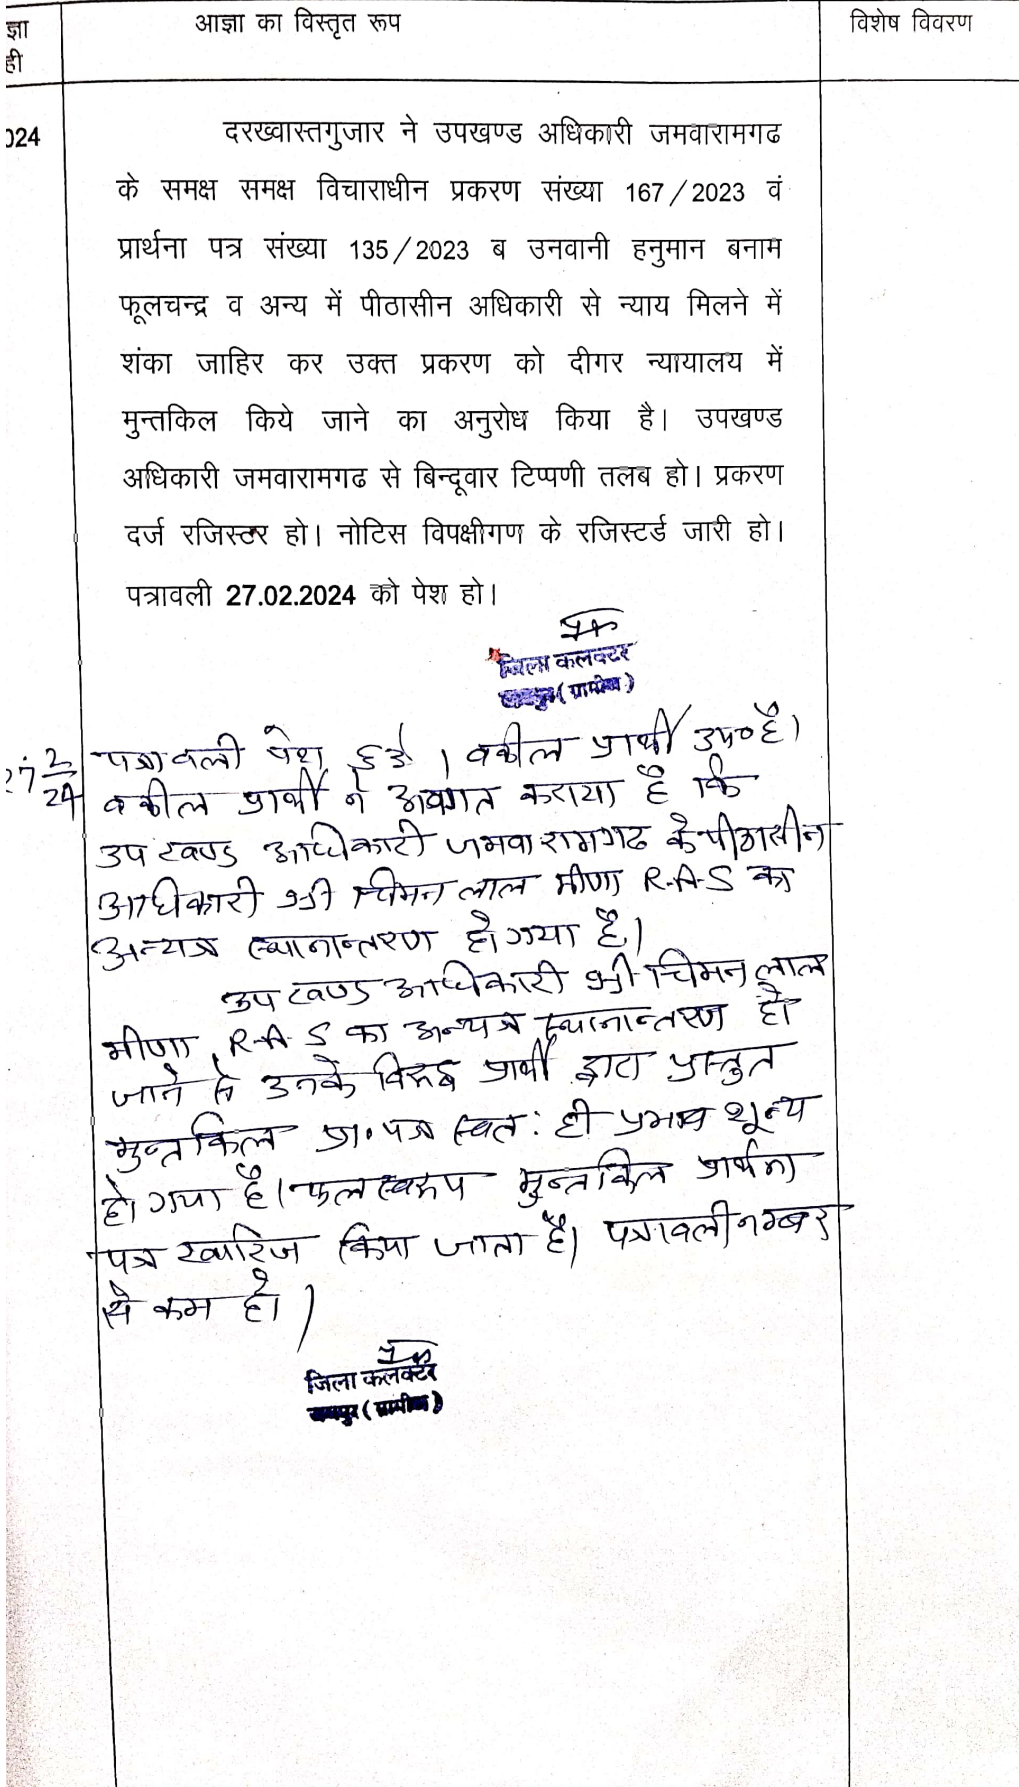 ज्ञा
ही
आज्ञा का विस्तृत रूप
विशेष विवरण
024
दरख्वास्तगुजार ने उपखण्ड अधिकारी जमवारामगढ
के समक्ष समक्ष विचाराधीन प्रकरण संख्या 167/2023 वं
प्रार्थना पत्र संख्या 135/2023 ब उनवानी हनुमान बनाम
फूलचन्द्र व अन्य में पीठासीन अधिकारी से न्याय मिलने में
शंका जाहिर कर उक्त प्रकरण को दीगर न्यायालय में
मुन्तकिल किये जाने का अनुरोध किया है। उपखण्ड
अधिकारी जमवारामगढ से बिन्दूवार टिप्पणी तलब हो। प्रकरण
दर्ज रजिस्टर हो। नोटिस विपक्षीगण के रजिस्टर्ड जारी हो।
पत्रावली 27.02.2024 को पेश हो।
जिला कलक्टर
(ग्रामीण)
27 2/24 पत्रावली पेश हुई। वकील प्रार्थी उप० है।
वकील प्रार्थी ने अवगत कराया है कि
उपखण्ड अधिकारी जमवारामगढ के पीठासीन
अधिकारी श्री चिमनलाल मीणा R.A.S का
अन्यत्र स्थानान्तरण हो गया है।
उपखण्ड अधिकारी श्री चिमनलाल
मीणा, R.A.S का अन्यत्र स्थानान्तरण हो
जाने से उनके विरूद्ध प्रार्थी द्वारा प्रस्तुत
मुन्तकिल प्रा.पत्र स्वत: ही प्रभाव शून्य
हो गया है। फलस्वरूप मुन्तकिल प्रार्थना
पत्र खारिज किया जाता है। पत्रावली नम्बर
से कम हो।
जिला कलक्टर
जयपुर (ग्रामीण)